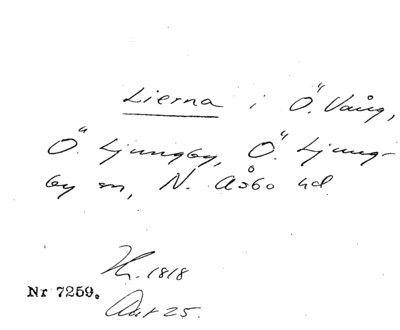 Lierna i Ö. Vång,
Ö. Ljungby, Ö. Ljung-
by sn, N. Åsbo hd
1818
Nr 7259.
Akt 25.